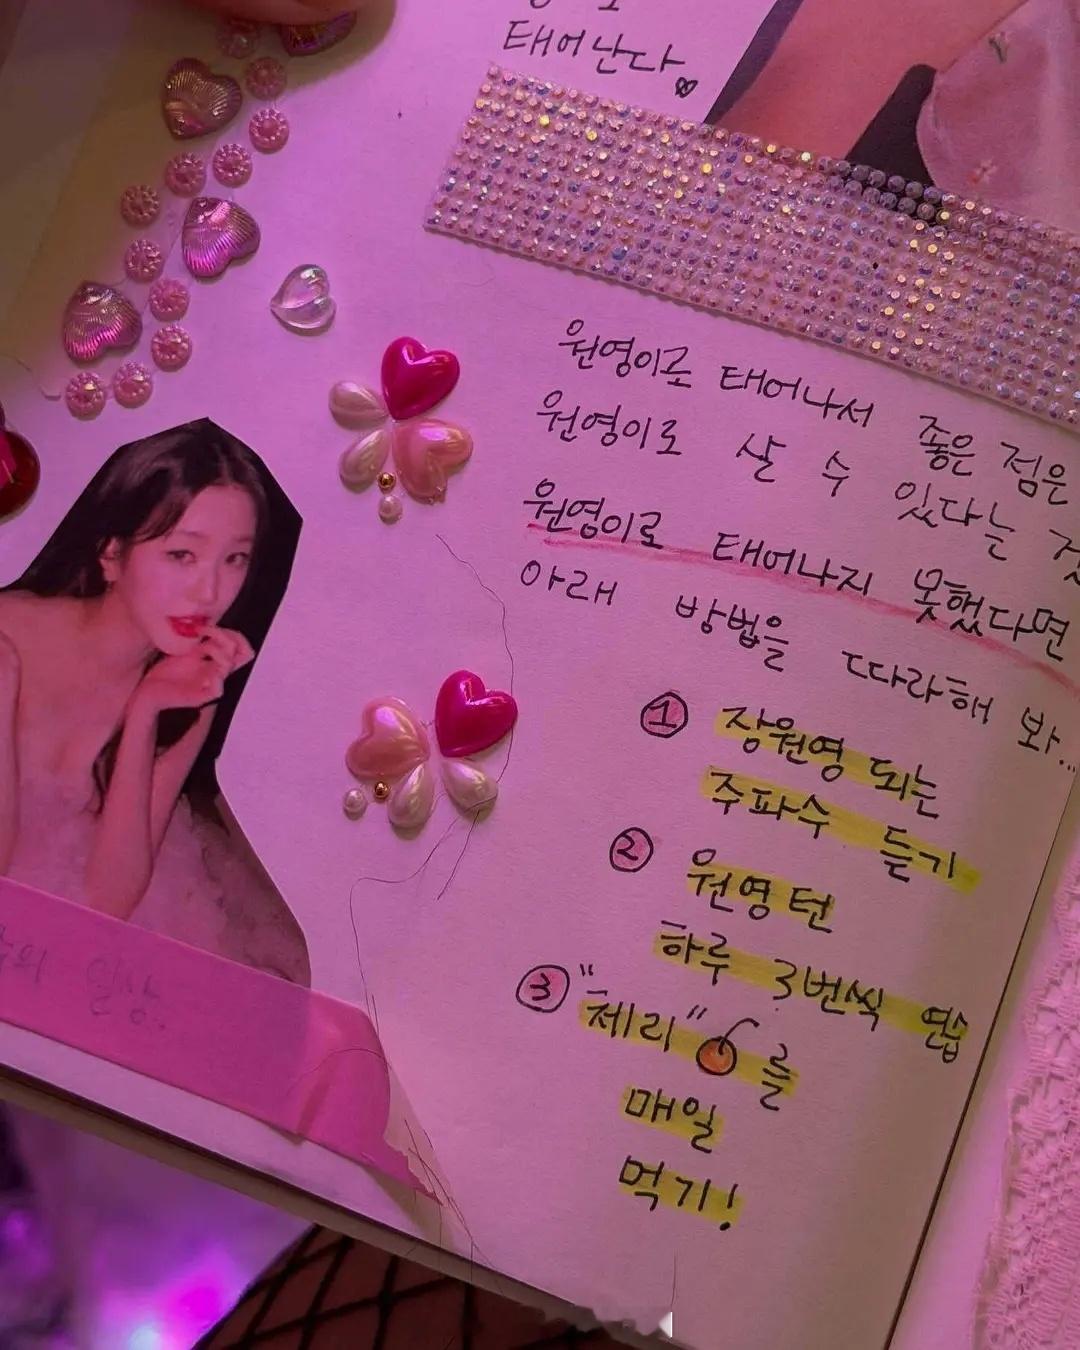 태어난다
원영이로 태어나서 좋은 점은
원영이로 살 수 있다는
원영이로 태어나지 못했다면
아래 방법을 따라해 봐...
① 장원영 되는
주파수 듣기
② 원영턴
하루 3번씩 연습
③ "체리"를
매일
먹기!
일상..